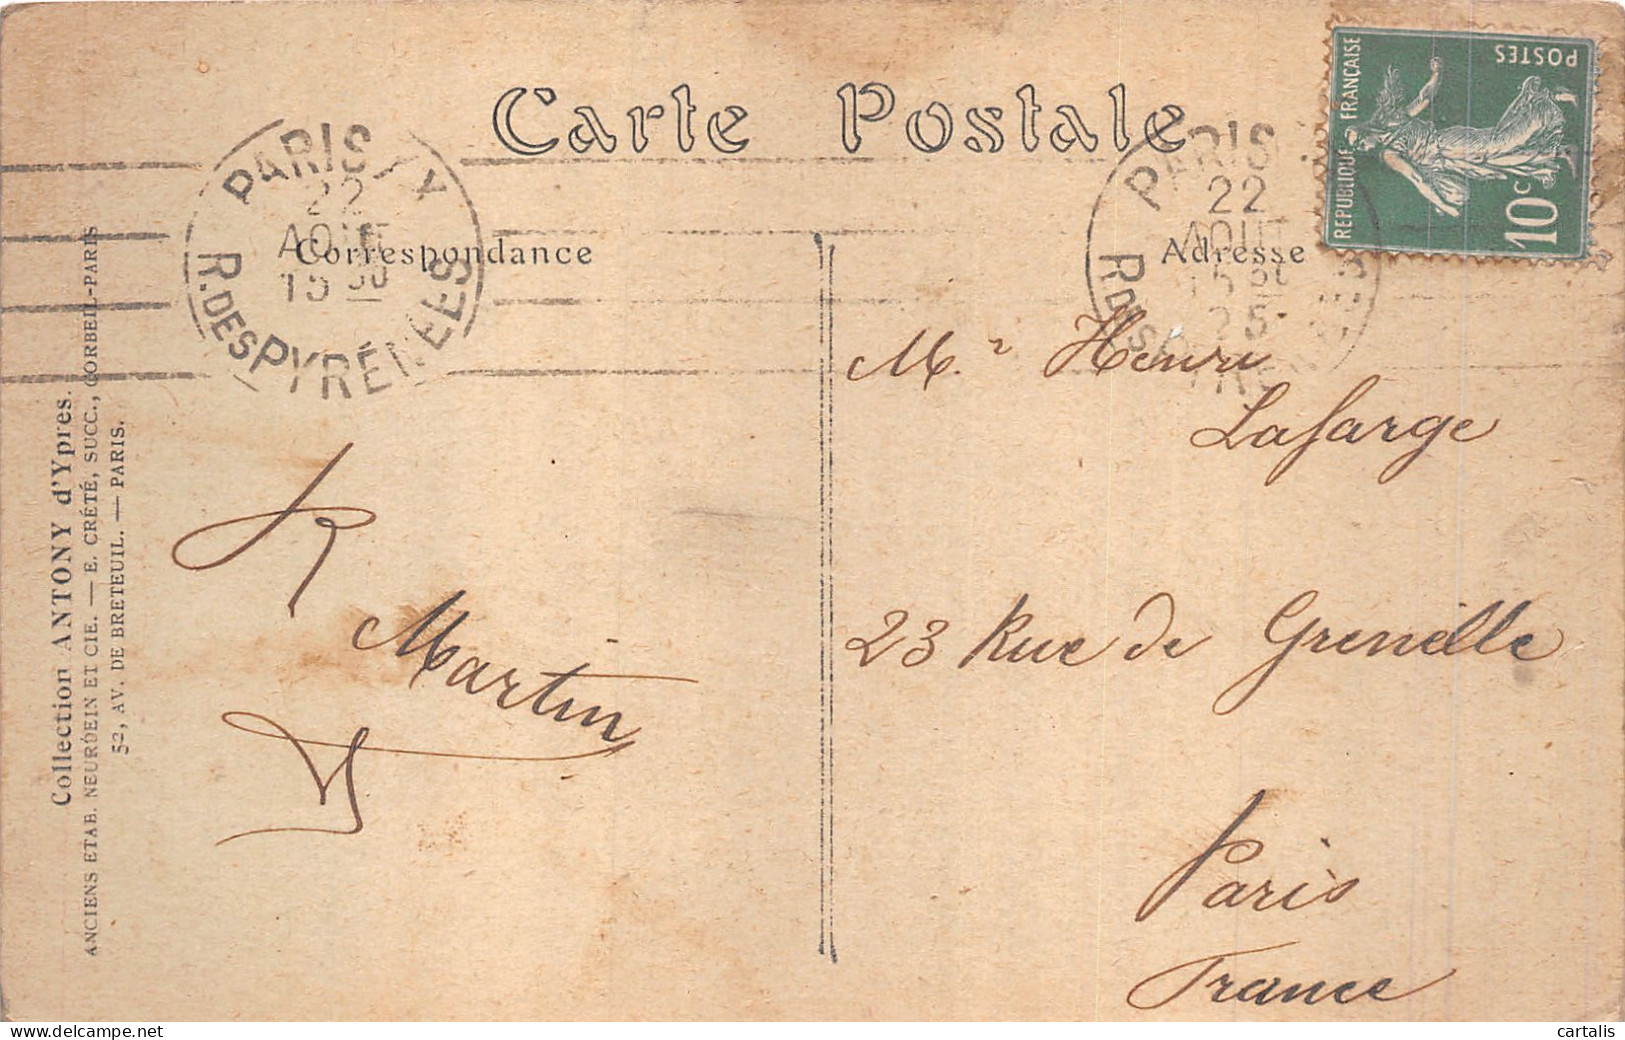 Carte Postale
Correspondance
Adresse
PARIS X
22
AOUT
15 30
R. DES PYRÉNÉES
PARIS
22
AOUT
15 30
25
R. DES PYRÉNÉES
REPUBLIQUE FRANÇAISE
POSTES
10c
Mr Henri
Lafarge
23 Rue de Grenelle
Paris
France
R
Martin
Collection ANTONY d'Ypres.
ANCIENS ETAB. NEURDEIN ET CIE. — E. CRÉTÉ, SUCC., CORBEIL-PARIS
52, AV. DE BRETEUIL. — PARIS.
cartalis